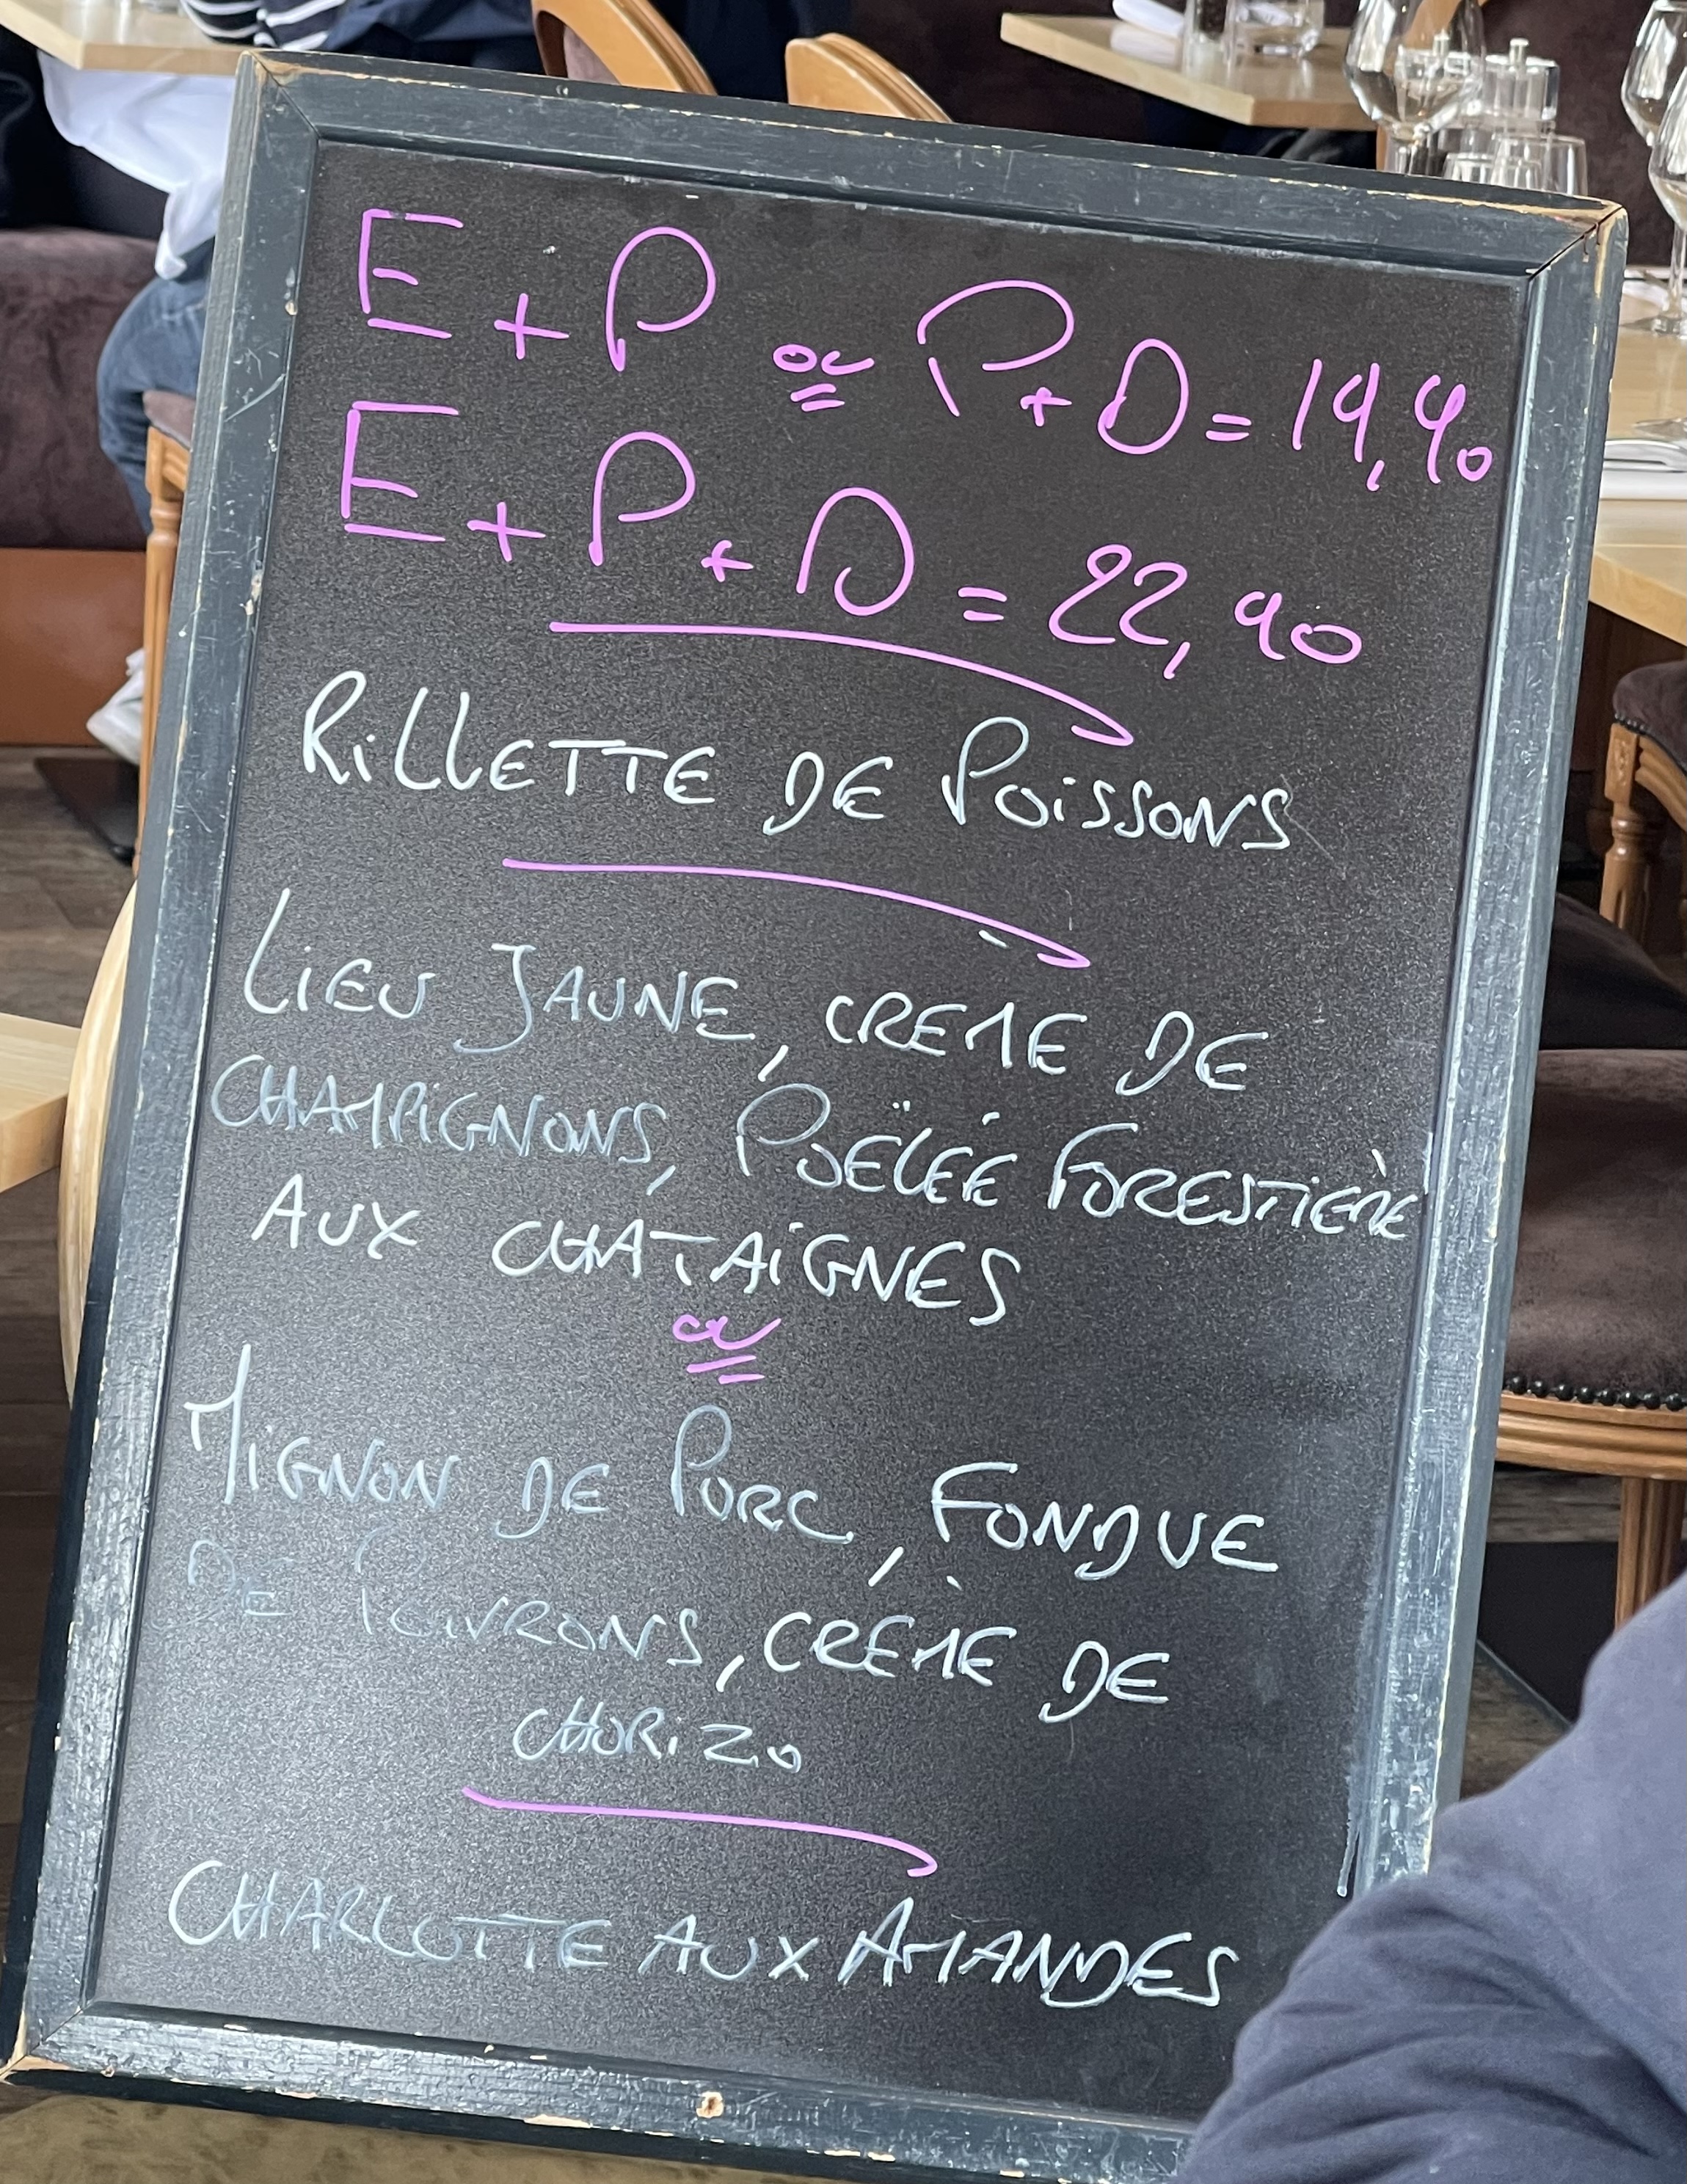 E + P ou P + D = 19,90
E + P + D = 22,90
RiLLETTE DE POiSSONS
LiEU JAUNE, CRÈME DE
CHAMPiGNONS, POËLÉE FORESTiÈRE
AUX CHATAiGNES
ou
MiGNON DE PORC, FONDUE
DE POiVRONS, CRÈME DE
CHORiZO
CHARLOTTE AUX AMANDES